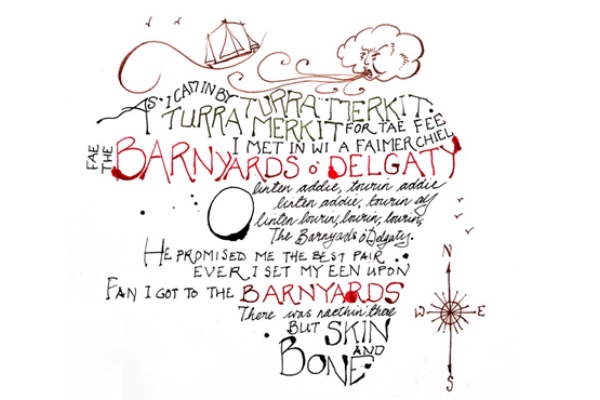 AS I CAM IN BY TURRA MERKIT.
TURRA MERKIT FOR TAE FEE
I MET IN WI A FAIMER CHIEL
FAE THE BARNYARDS O' DELGATY
O linten addie, tourin addie
linten addie, tourin ay
linten lourin, lourin, lourin,
The Barnyards o' Delgaty.
HE PROMISED ME THE BEST PAIR
EVER I SET MY EEN UPON
FAN I GOT TO THE BARNYARDS
There was naethin there
BUT SKIN
AND
BONE.
N
W E
S